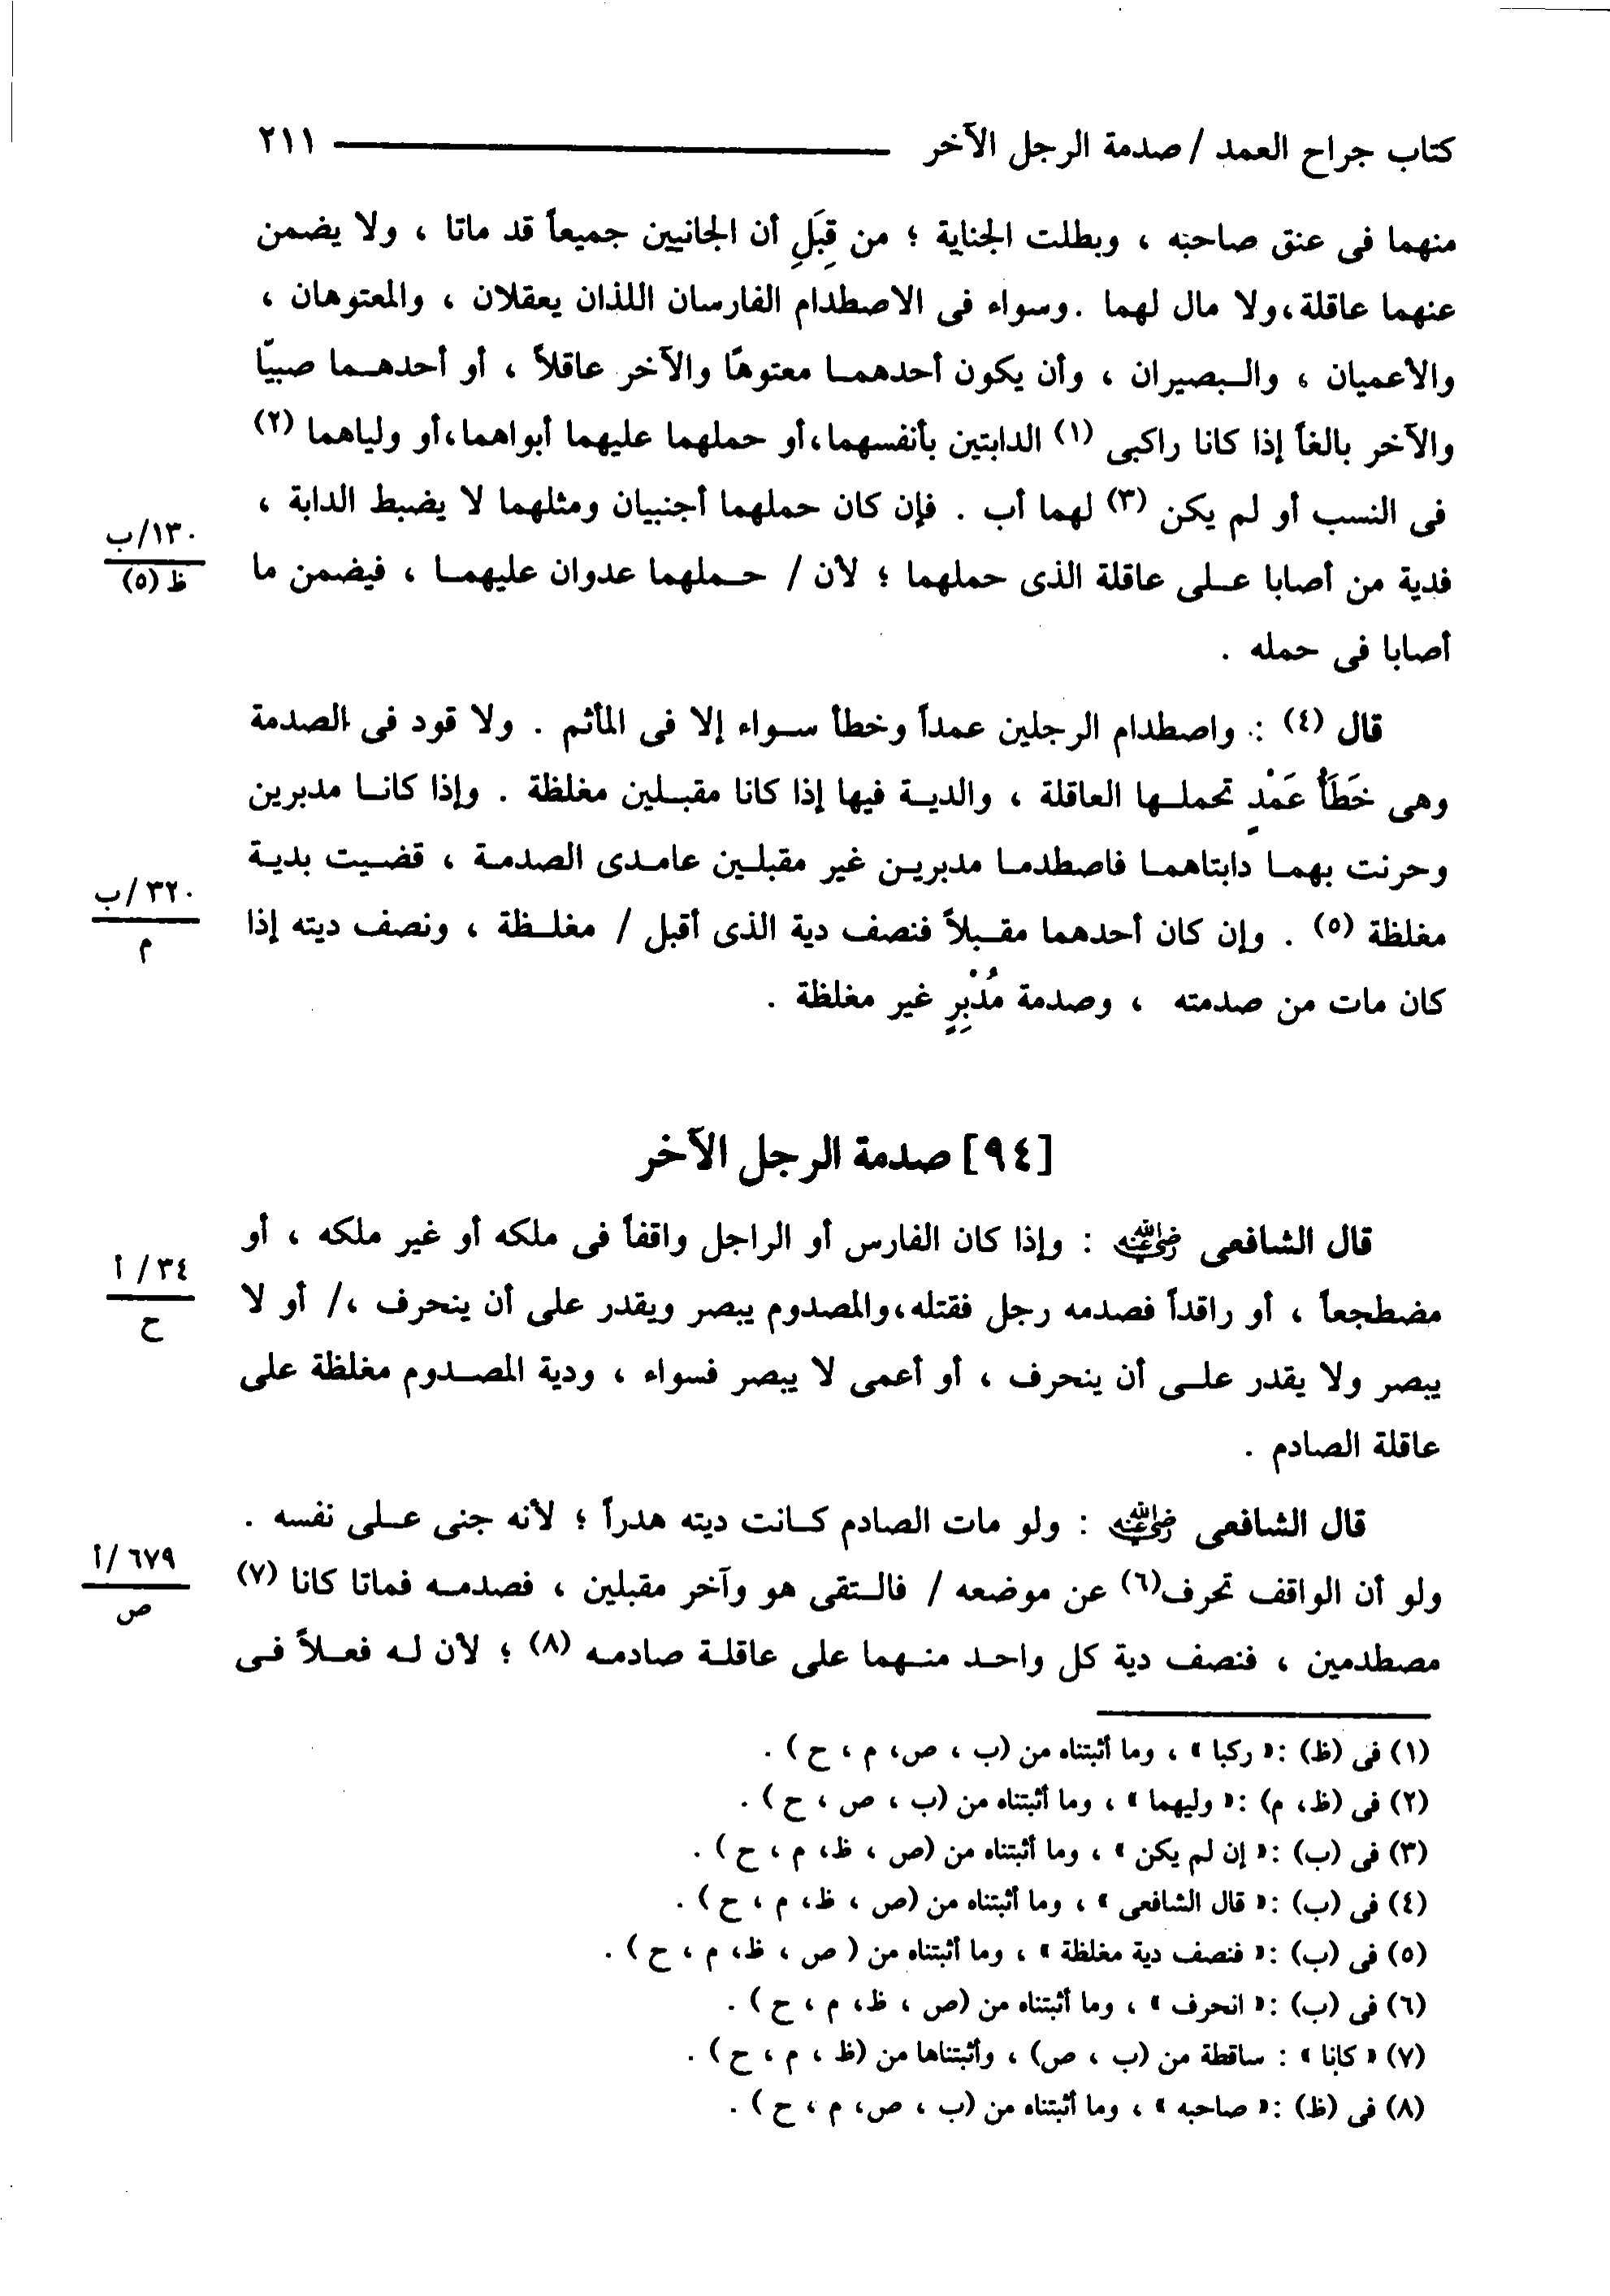 كتاب جراح العمد / صدمة الرجل الآخر ٢١١
منهما فى عنق صاحبه ، وبطلت الجناية ؛ من قِبَلِ أن الجانيين جميعاً قد ماتا ، ولا يضمن
عنهما عاقلة ، ولا مال لهما . وسواء فى الاصطدام الفارسان اللذان يعقلان ، والمعتوهان ،
والأعميان ، والبصيران ، وأن يكون أحدهما معتوهًا والآخر عاقلاً ، أو أحدهما صبيًا
والآخر بالغاً إذا كانا راكبى (١) الدابتين بأنفسهما ، أو حملهما عليهما أبواهما ، أو ولياهما (٢)
فى النسب أو لم يكن (٣) لهما أب . فإن كان حملهما أجنبيان ومثلهما لا يضبط الدابة ،
١٣٠/ب
فدية من أصابا على عاقلة الذى حملهما ؛ لأن / حملهما عدوان عليهما ، فيضمن ما
ظ (٥)
أصابا فى حمله .
قال (٤) : واصطدام الرجلين عمداً وخطأ سواء إلا فى المأثم . ولا قود فى الصدمة
وهى خَطَأُ عَمْدٍ تحملها العاقلة ، والدية فيها إذا كانا مقبلين مغلظة . وإذا كانا مدبرين
وحرنت بهما دابتاهما فاصطدما مدبرين غير مقبلين عامدى الصدمة ، قضيت بدية
٣٢٠/ب
مغلظة (٥) . وإن كان أحدهما مقبلاً فنصف دية الذى أقبل / مغلظة ، ونصف ديته إذا
م
كان مات من صدمته ، وصدمة مُدْبِرٍ غير مغلظة .
[٩٤] صدمة الرجل الآخر
قال الشافعى رضي الله عنه : وإذا كان الفارس أو الراجل واقفاً فى ملكه أو غير ملكه ، أو
٣٤/أ
مضطجعاً ، أو راقداً فصدمه رجل فقتله ، والمصدوم يبصر ويقدر على أن ينحرف ، / أو لا
ح
يبصر ولا يقدر على أن ينحرف ، أو أعمى لا يبصر فسواء ، ودية المصدوم مغلظة على
عاقلة الصادم .
قال الشافعى رضي الله عنه : ولو مات الصادم كانت ديته هدراً ؛ لأنه جنى على نفسه .
٦٧٩/أ
ولو أن الواقف تحرف (٦) عن موضعه / فالتقى هو وآخر مقبلين ، فصدمه فماتا كانا (٧)
ص
مصطدمين ، فنصف دية كل واحد منهما على عاقلة صادمه (٨) ؛ لأن له فعلاً فى
(١) فى (ظ) : « ركبا » ، وما أثبتناه من (ب ، ص، م ، ح ) .
(٢) فى (ظ، م) : « وليهما » ، وما أثبتناه من (ب ، ص ، ح ) .
(٣) فى (ب) : « إن لم يكن » ، وما أثبتناه من (ص ، ظ، م ، ح ) .
(٤) فى (ب) : « قال الشافعى » ، وما أثبتناه من (ص ، ظ، م ، ح ) .
(٥) فى (ب) : « فنصف دية مغلظة » ، وما أثبتناه من ( ص ، ظ، م ، ح ) .
(٦) فى (ب) : « انحرف » ، وما أثبتناه من (ص ، ظ، م ، ح ) .
(٧) « كانا » : ساقطة من (ب ، ص) ، وأثبتناها من (ظ ، م ، ح ) .
(٨) فى (ظ) : « صاحبه » ، وما أثبتناه من (ب ، ص، م ، ح ) .